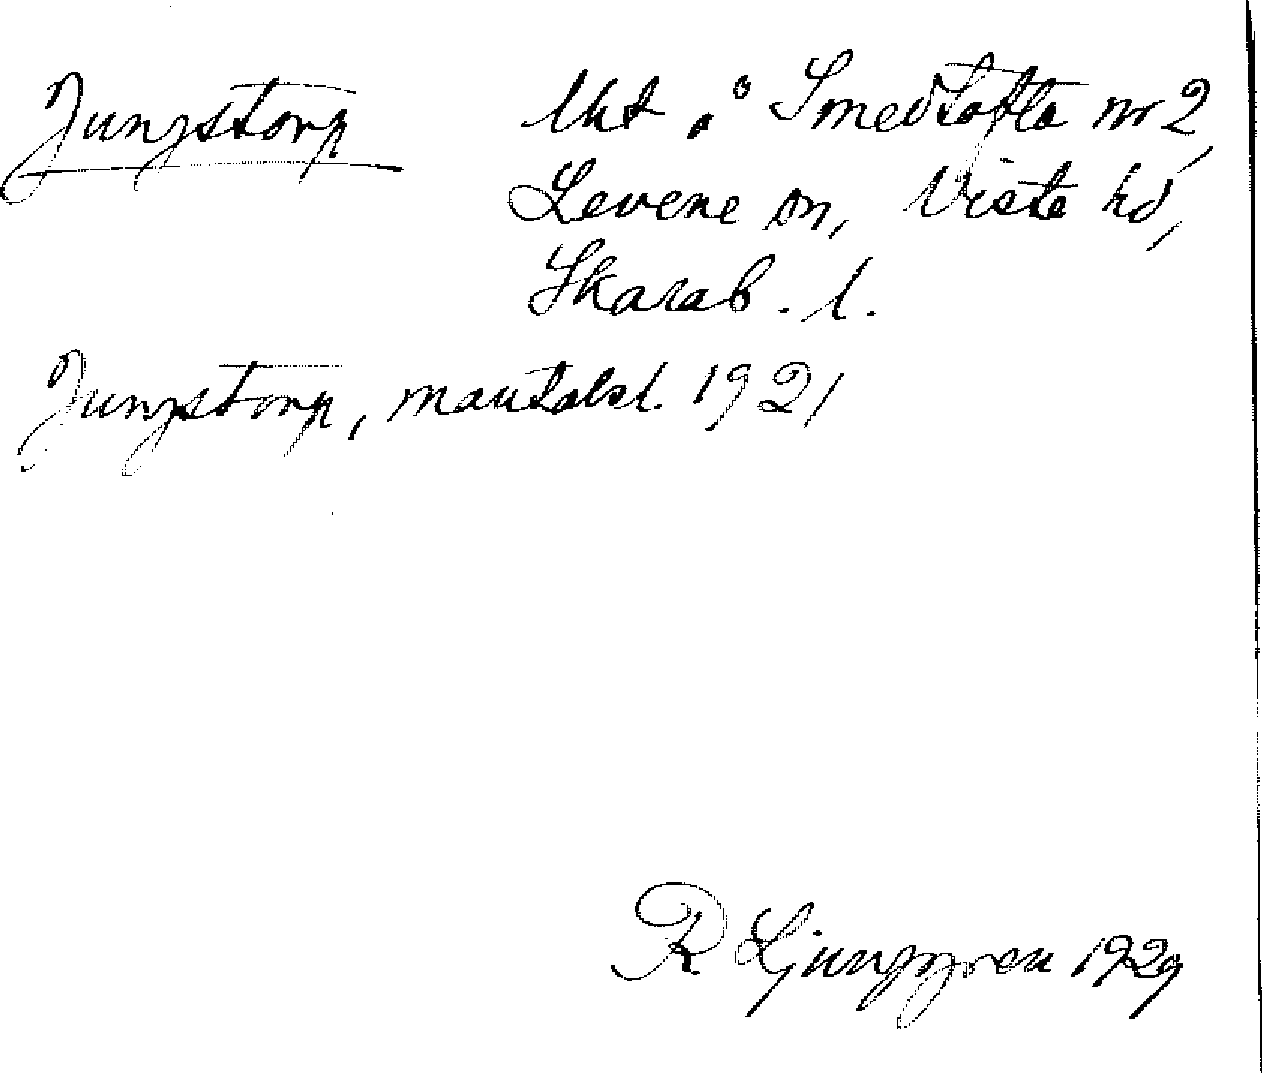 Jungstorp Lht på Smedtofta nr 2,
Levene sn, Viste hd,
Skarab. l.
Jungstorp, mantalsl. 1921
R Ljunggren 1929